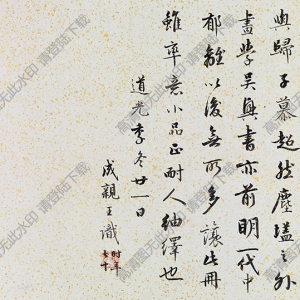 與歸子慕超然塵壒之外
畫學吳興書亦前明一代中
郁離以後無所多讓此冊
雖率意小品正耐人紬繹也
道光季冬廿一日
成親王識
時年七十